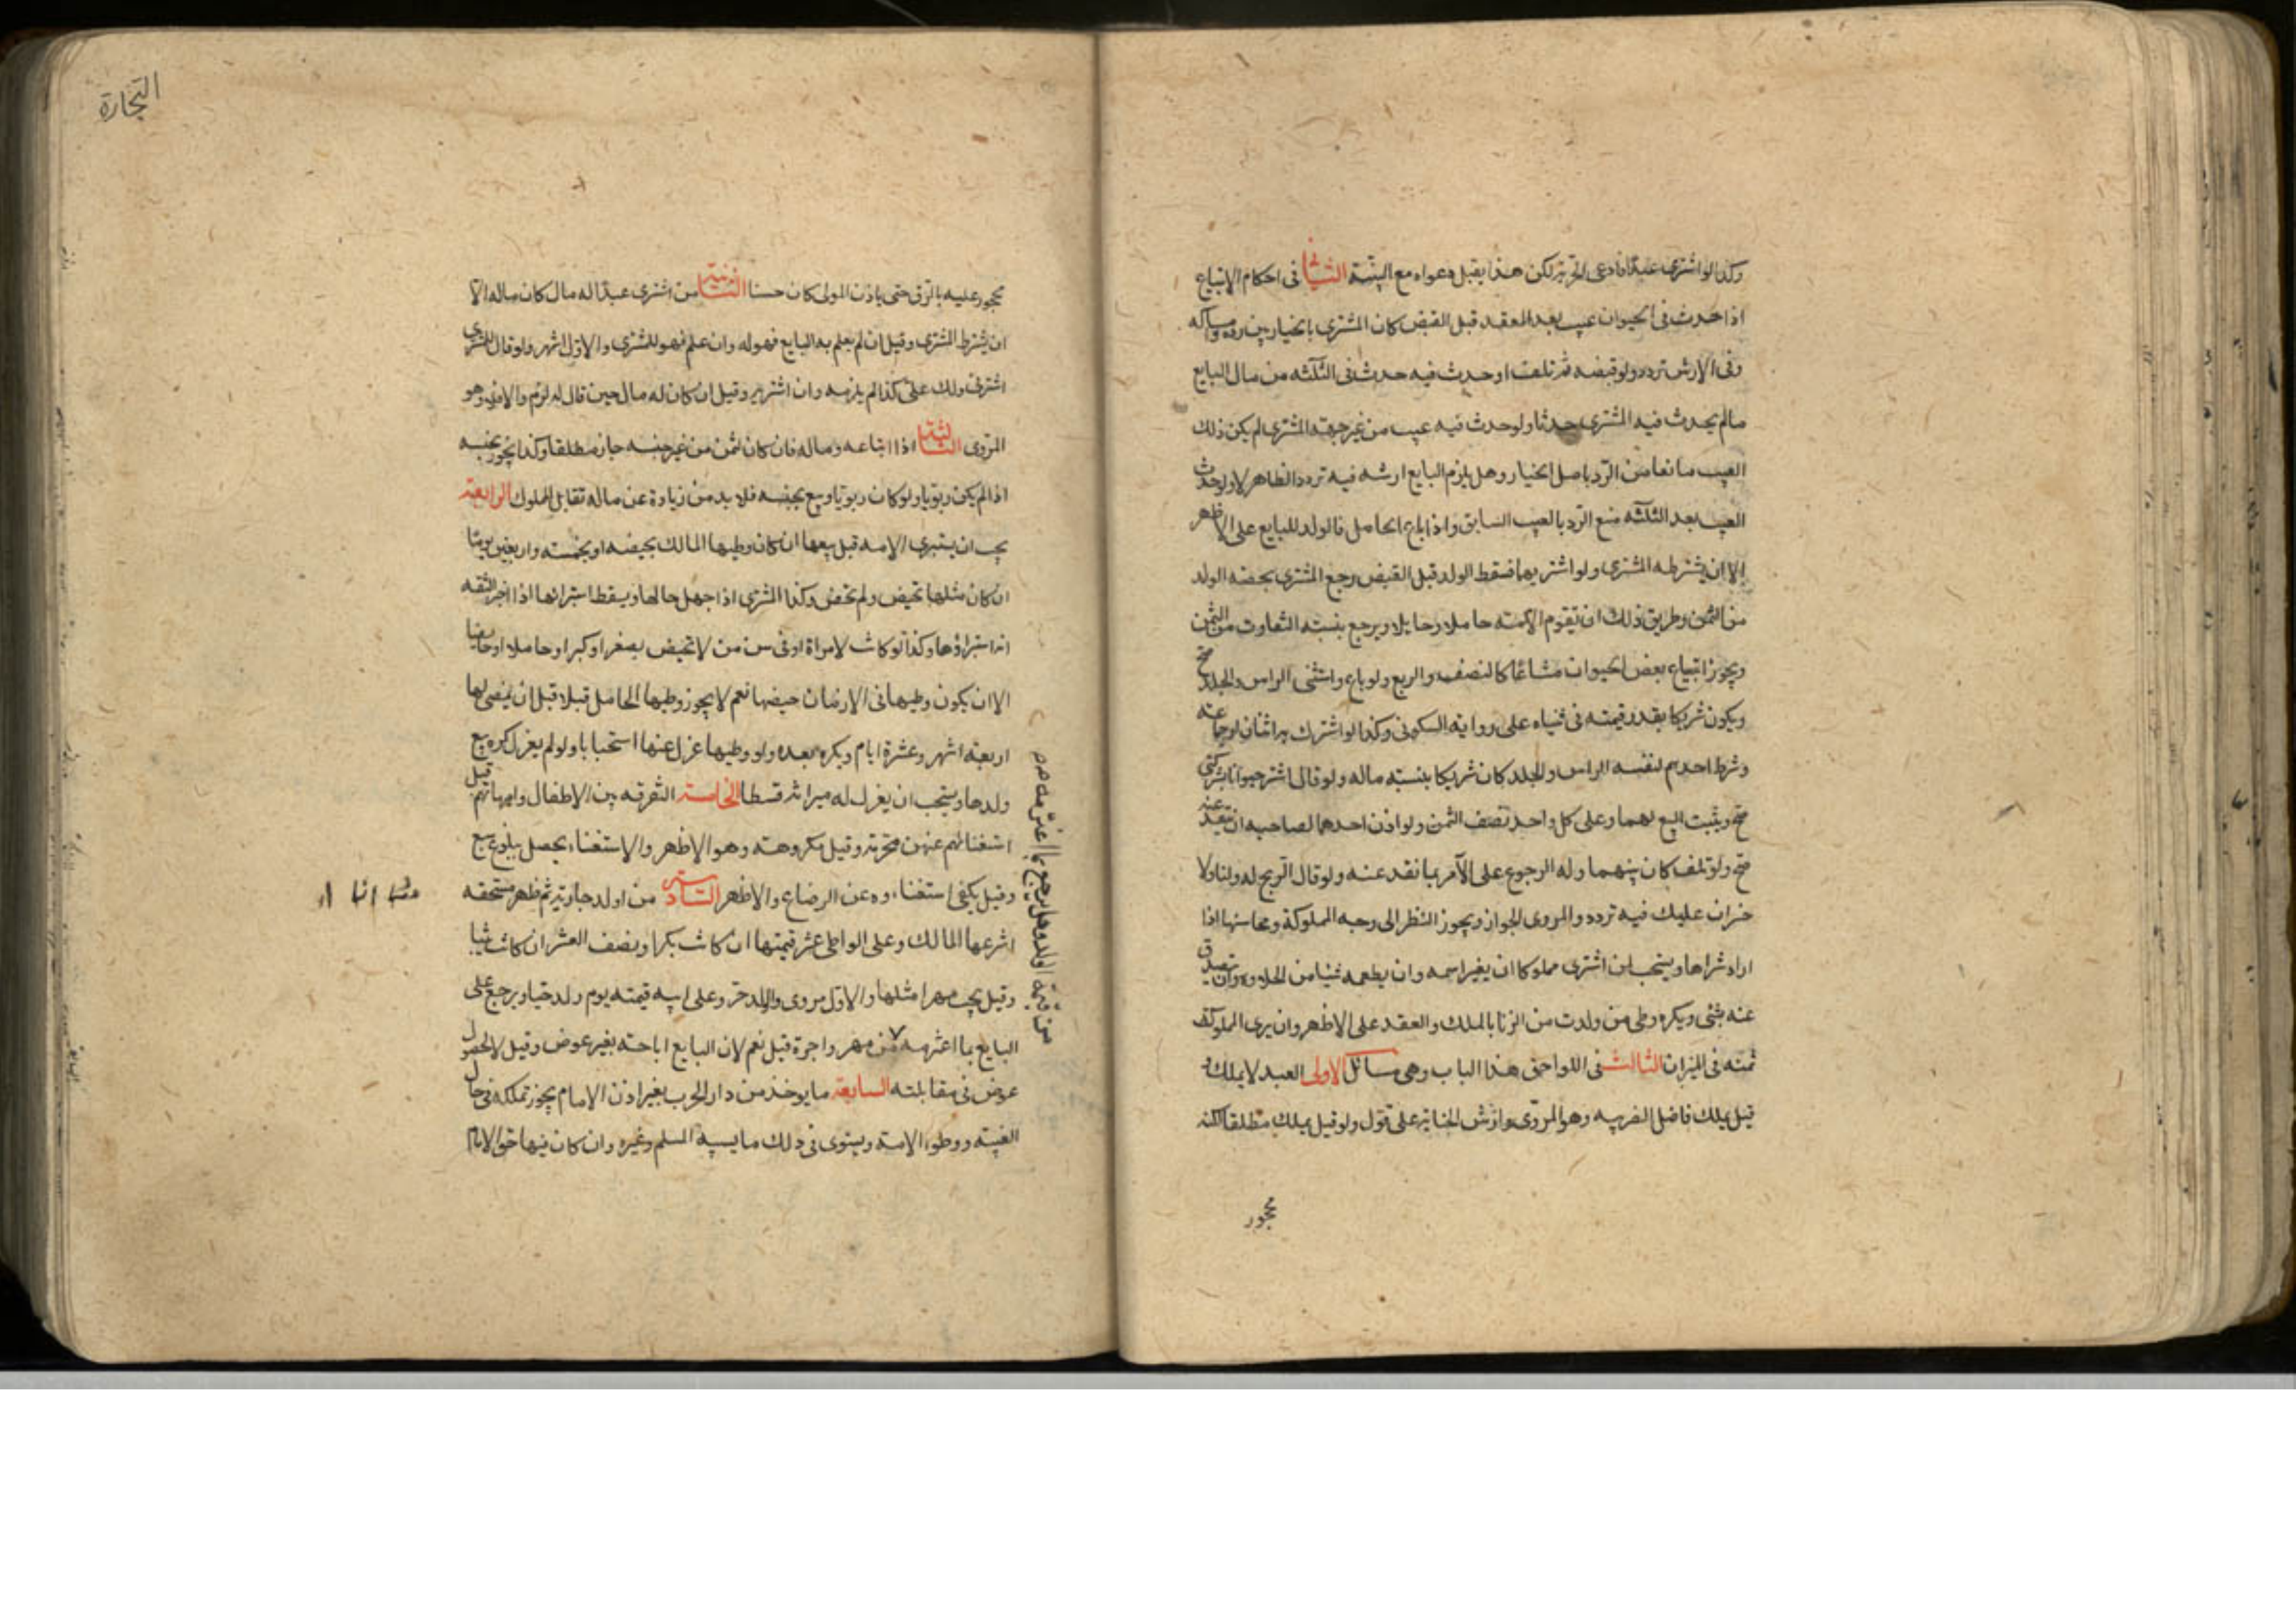 وكذا لو اشترى عبدا فادعى الحرية لكن هذا يقبل دعواه مع البينة الثاني في احكام الابتياع
اذا حدث في الحيوان عيب بعد العقد قبل القبض كان المشترى بالخيار بين رده وامساكه
وفى الارش تردد ولو قبضه ثم تلف او حدث فيه حدث فى الثلثه من مال البايع
مالم يحدث فيه المشترى حدثا ولو حدث فيه عيب من غير جهة المشترى لم يكن ذلك
العيب مانعا من الرد باصل الخيار وهل يلزم البايع ارشه فيه تردد الظاهر لا ولو حدث
العيب بعد الثلثه منع الرد بالعيب السابق واذا باع الحامل فالولد للبايع على الاظهر
الا ان يشترطه المشترى ولو اشتريها فسقط الولد قبل القبض رجع المشترى بحصه الولد
من الثمن وطريق ذلك ان تقوم الامته حاملا وحايلا ويرجع بنسبته التفاوت من الثمن
ويجوز ابتياع بعض الحيوان مشاعا كالنصف والربع ولو باع واستثنى الراس والجلد صح
ويكون شريكا بقدر قيمته فى ثنياه على روايه السكونى وكذا لو اشترك براثنان او جماعته
وشرط احدهم لنفسه الراس والجلد كان شريكا بنسبته ماله ولو قال اشتر حيوانا بشركتى
صح ويثبت البيع لهما وعلى كل واحد نصف الثمن ولو اذن احدهما لصاحبه ان ينقد عنه
صح ولو تلف كان بينهما وله الرجوع على الآمر بما نقد عنه ولو قال الربح له ولنا ولا
خسران عليك فيه تردد والمروى الجواز ويجوز النظر الى وجه المملوكة ومحاسنها اذا
اراد شراها ويستحب لمن اشترى مملوكا ان يغير اسمه وان يطعمه شيئا من الحلاوه وان يتصدق
عنه بشئ ويكره وطى من ولدت من الزنا بالملك والعقد على الاظهر وان يرى المملوك
ثمنه فى الميزان الثالث فى اللواحق هذا الباب وهى مسائل الاولى العبد لا يملك و
قيل يملك فاضل الضريبه وهو المروى وارش الجناية على قول ولو قيل يملك مطلقا لكنه
محجور
التجارة
محجور عليه بالرق حتى ياذن المولى كان حسنا الثانية من اشترى عبدا له مال كان ماله الا
ان يشترط المشترى وقيل ان لم يعلم به البايع فهو له وان علم فهو للمشترى والاول اشهر ولو قال للمشترى
اشترنى ولك على كذا لم يلزمه وان اشتريه وقيل ان كان له مال حين قال له لزم والا فلا وهو
المروى الثالثة اذا ابتاعه وماله فان كان الثمن من غير جنسه جاز مطلقا وكذا يجوز بجنسه
اذا لم يكن ربويا ولو كان ربويا وبيع بجنسه فلا بد من زيادة عن ماله تقابل المملوك الرابعة
يجب ان يستبرى الامه قبل بيعها ان كان وطيها المالك بحيضه او بخمسته واربعين يوما
ان كان مثلها تحيض ولم تحض وكذا المشترى اذا جهل حالها ويسقط استبرائها اذا اخبر الثقه
انه استبراؤها وكذا لو كانت لامراة او فى سن من لا تحيض بصغر او كبر او حاملا او حايضا
الا ان يكون وطيها فى الا زمان حيضها نعم لا يجوز وطيها الحامل قبلا قبل ان يمضى لها
اربعته اشهر وعشرة ايام ويكره بعده ولو وطيها عزل عنها استحبابا ولو لم يعزل كره بيع
ولدها ويستحب ان يعزل له ميراثه قسطا الخامسة التفرقه بين الاطفال وامهاتهم قبل
استغنائهم عنهن محرمة وقيل مكروهته وهو الاظهر والاستغناء يحصل ببلوغ سبع
وقيل يكفى استغناءه عن الرضاع والاظهر السادسة من اولد جارية ثم ظهر مستحقه
انتزعها المالك وعلى الواطى عشر قيمتها ان كانت بكرا ونصف العشر ان كانت ثيبا
وقيل يجب مهر امثلها والاول مروى والولد حر وعلى ابيه قيمته يوم ولد حيا ويرجع على
البايع بما اغترمه من مهر واجرة قيل نعم لان البايع اباحته بغير عوض وقيل لا لحصول
عوض فى مقابلته السابعة ما يوخذ من دار الحرب بغير اذن الامام يجوز تملكه فى حال
الغيبته ووطوء الامته ويستوى فى ذلك ما يسبيه المسلم وغيره وان كان فيها حق الامام
من قيمة الولد وهل يرجع بما اغترمه